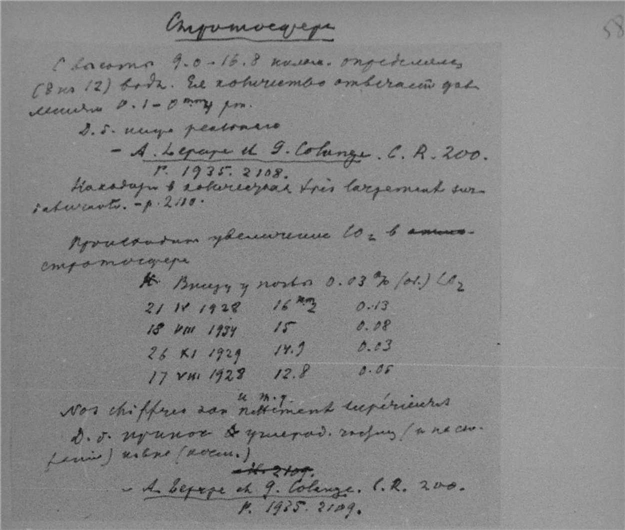 Стратосфера
58
С высоты 9.0 – 16.8 килом. определялась
(8 из 12) вода. Ее количество отвечает дав-
лениям 0.1 – 0 mm рт.
Д. б. ниже реального
– A. Lepape et G. Colange. C. R. 200.
P. 1935. 2108.
Находим в количествах très largement sur-
– p. 2110.
Происходит увеличение CO2 в
стратосфере
Внизу у почвы 0.03 % (об.) CO2
21 IV 1928 16 0.13
18 VIII 1934 15 0.08
26 XI 1929 14.9 0.03
17 VIII 1928 12.8 0.05
и т. д.
Nos chiffres son nettement supérieurs
Д. б. принос углерод. частиц (и их сго-
рение) извне (косм.)
p. 2109.
– A. Lepape et G. Colange. C. R. 200.
P. 1935. 2109.